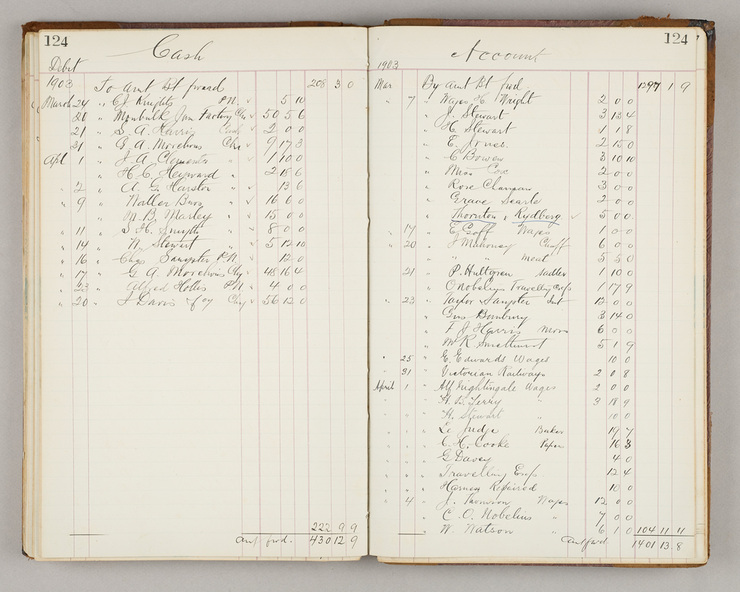 124
Cash
Debit
1903 To Amt Bt forward 208 3 0
March 24 " C.J. Knights P.N. 5 10
" Mynbulk Jam Factory Chq 50 5 6
21 " S. A. Harris Cash 2 0 0
21 " G. A. Morehous Chq 9 17 3
Apl 1 " J. A. Clements " 1 10 0
" H. C. Heyward " 2 18 6
" 2 " A. G. Harston " 13 6
" 9 " Walter " 16 6 0
" M. B. Marley " 15 0 0
" 11 " S. H. Smyth " 8 0 0
" 14 " W. Stewart " 5 12 10
" 16 " Chas Sangster P.N. 12 0
" 17 " G. A. Morehous Chq 48 16 4
" 23 " Alfred Hollis P.N. 4 0 0
" 20 " J Davis Chq 56 12 0
222 9 9
Amt fwd. 430 12 9
124
Account
1903
Mar By Amt Bt fwd 1297 1 9
" 7 " Wages H. Wright 2 0 0
" J. Stewart 3 13 4
" H. Stewart 1 1 8
" E. Jones 2 15 0
" C Bowen 3 10 10
" Miss Cox 2 0 0
" Rose Clampans 3 0 0
" Grace Searle 2 0 0
" Thornton & Rydberg 5 0 0
" 17 " E. Goff Wages 1 0 0
" 20 " J Mahoney Chaff 6 0 0
" " " meat 5 5 0
21 " P. Hultgren Sadler 1 10 0
" C Nobelius Travelling Exps 1 17 9
" 23 " Taylor Sangster Int 12 0 0
" Gus Bunbury 3 14 0
" T. J. Harris 6 0 0
" M R Smethurst 5 1 9
" 25 " E. Edwards Wages 10 0
" 31 " Victorian Railways 2 0 8
April 1 " Alf Nightingale Wages 2 0 0
" " " Terry " 3 18 9
" " " H. Stewart " 10 0
" " " Le Judge Baker 19 7
" " " C. H. Cooke Paper 16 3
" " " G Davey 4 0
" " " Travelling Exps 12 4
" " " Harness Repaired 10 0
" 4 " J. Thomson Wages 12 0 0
" C. O. Nobelius " 7 0 0
" W. Watson " 6 1 0 104 11 11
Amt fwd 1401 13 8